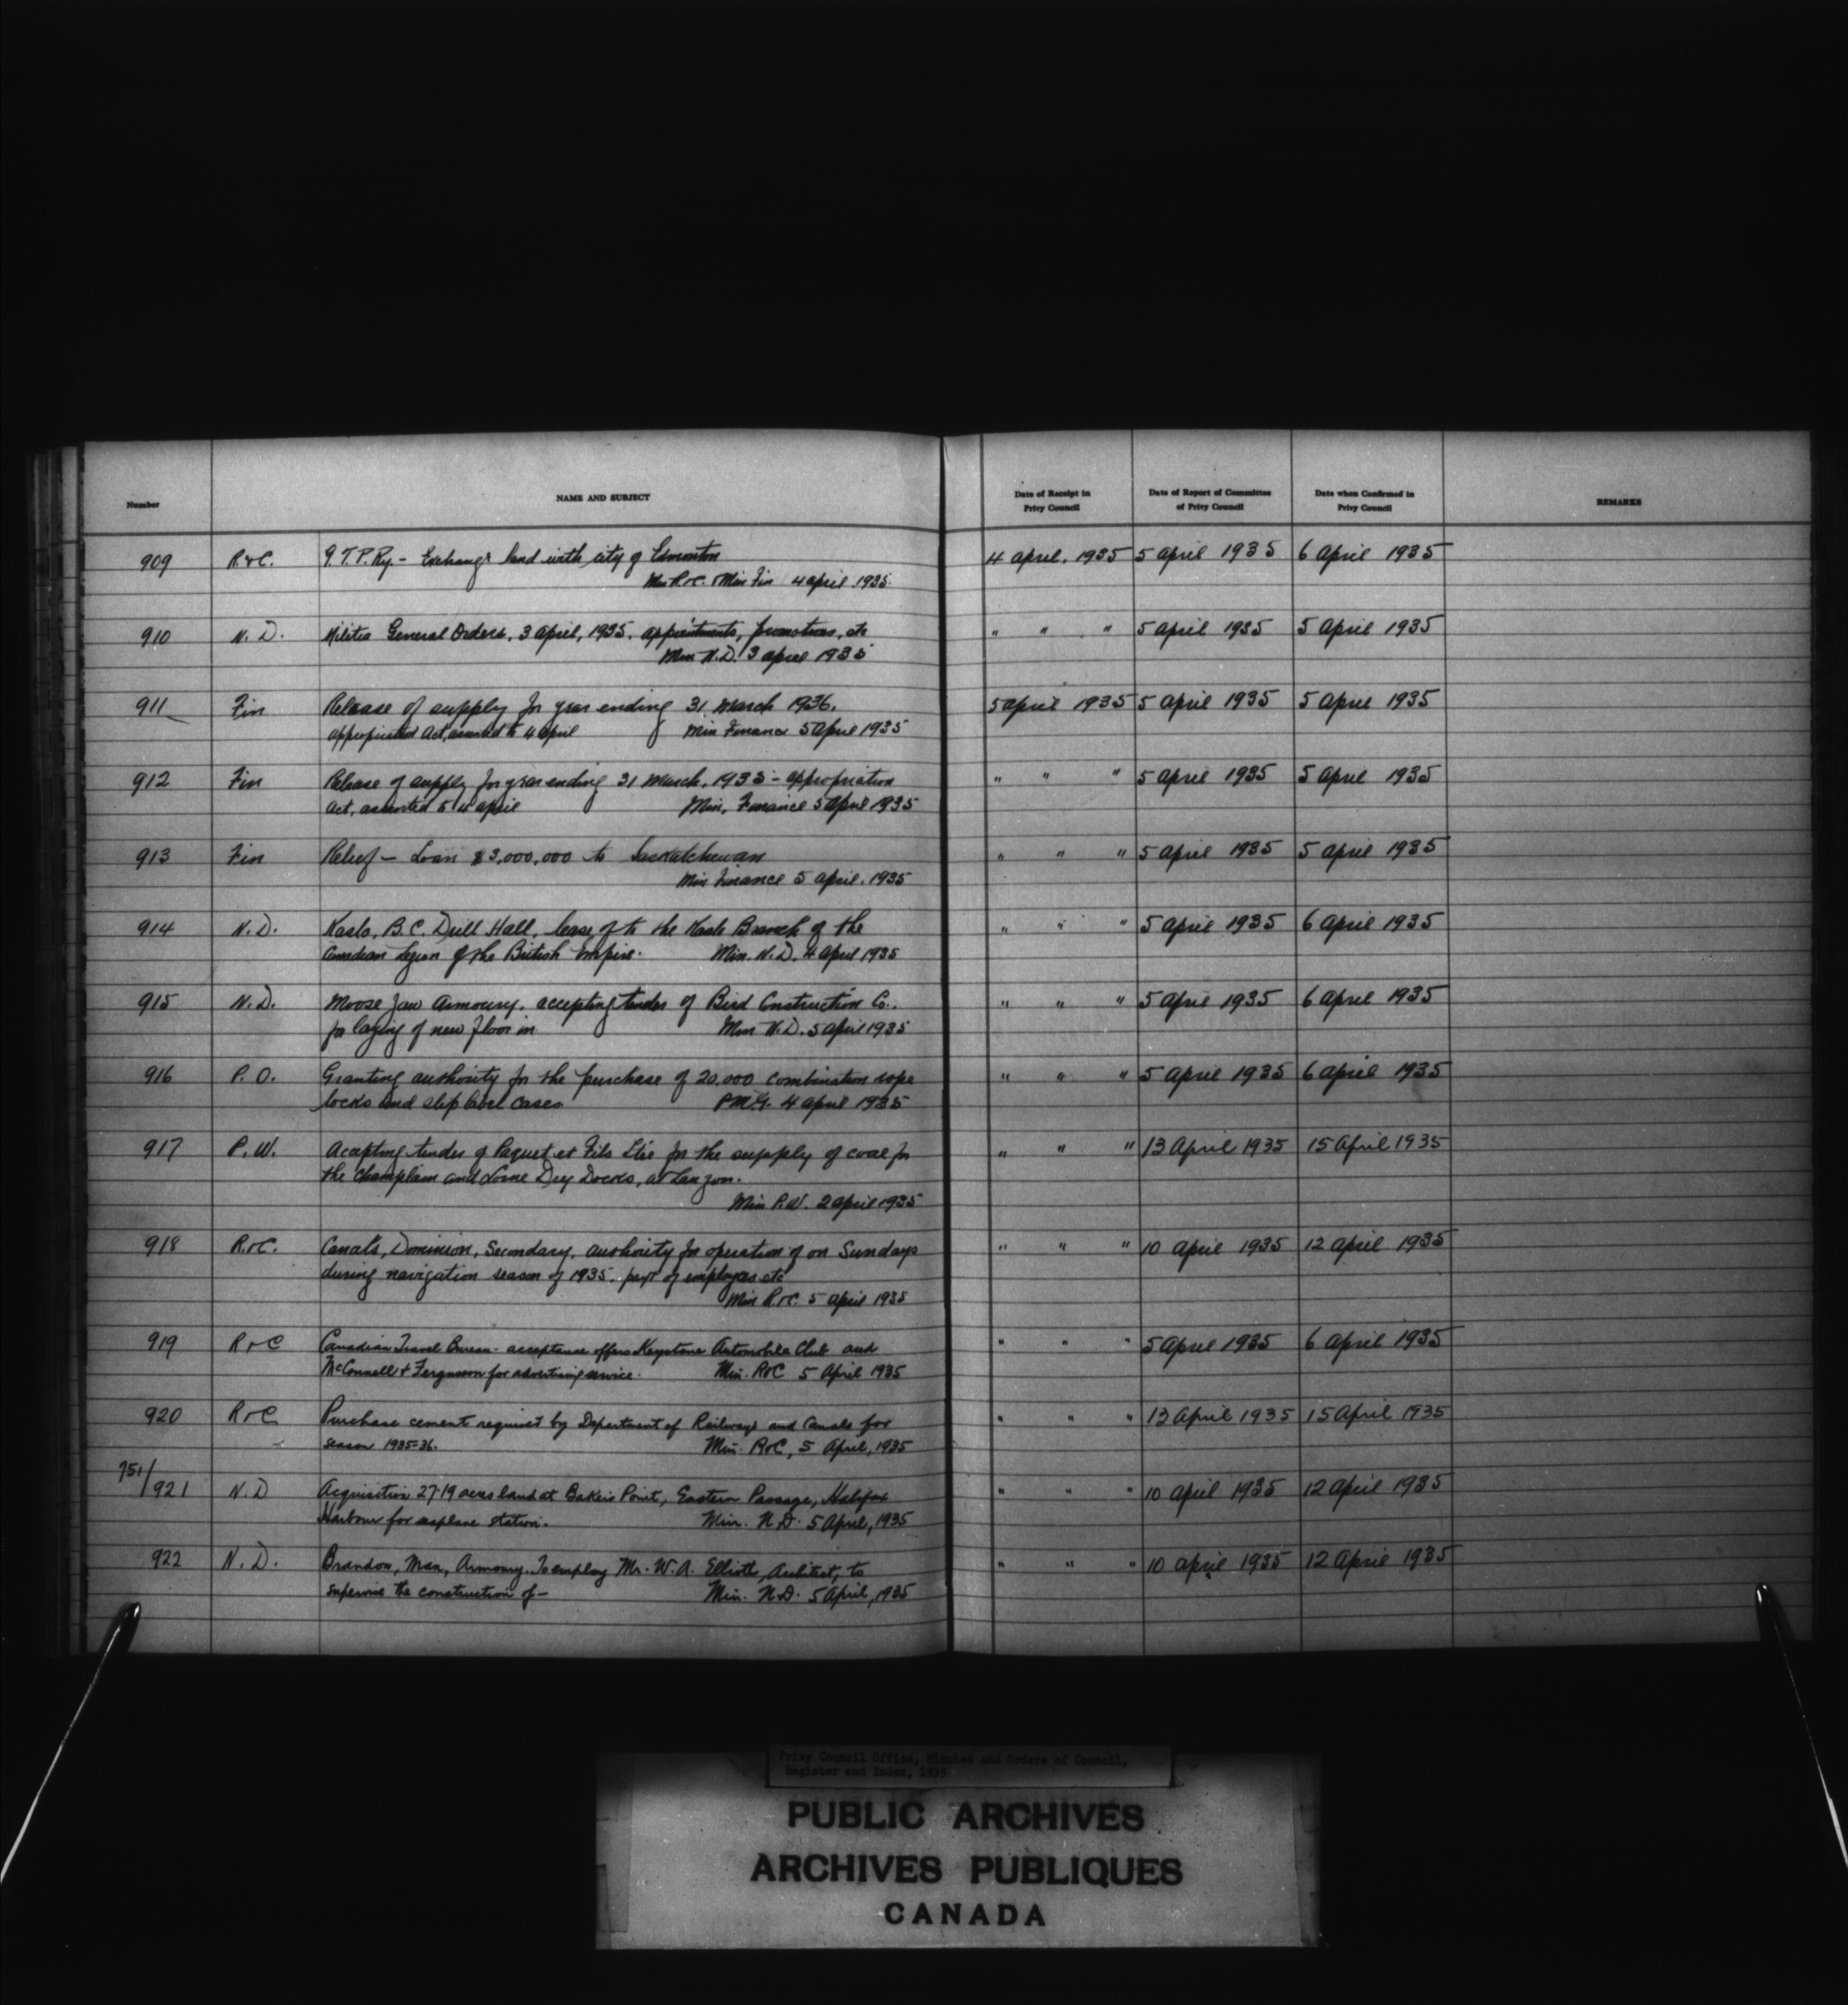 Number
NAME AND SUBJECT
Date of Receipt in
Privy Council
Date of Report of Committee
of Privy Council
Date when Confirmed in
Privy Council
REMARKS
909 R.&C. G.T.P. Ry. - Exchange land with city of Edmonton 4 April, 1935 5 April 1935 6 April 1935
Min R.&C. & Min Fin 4 April 1935
910 N.D. Militia General Orders, 3 April, 1935, appointments, promotions, etc " " " 5 April 1935 5 April 1935
Min N.D. 3 April 1935
911 Fin Release of supply for year ending 31 March 1936. 5 April 1935 5 April 1935 5 April 1935
appropriation Act, assented to 4 April Min Finance 5 April 1935
912 Fin Release of supply for year ending 31 March, 1935 - appropriation " " " 5 April 1935 5 April 1935
Act, assented to 4 April Min. Finance 5 April 1935
913 Fin Relief - Loan $3,000,000 to Saskatchewan " " " 5 April 1935 5 April 1935
Min Finance 5 April, 1935
914 N.D. Kaslo, B.C. Drill Hall, lease of to the Kaslo Branch of the " " " 5 April 1935 6 April 1935
Canadian Legion of the British Empire. Min. N.D. 4 April 1935
915 N.D. Moose Jaw Armoury, accepting tender of Bird Construction Co. " " " 5 April 1935 6 April 1935
for laying of new floor in Min N.D. 5 April 1935
916 P.O. Granting authority for the purchase of 20,000 combination rope " " " 5 April 1935 6 April 1935
locks and slip label cases P.M.G. 4 April 1935
917 P.W. Accepting tender of Paquet et Fils Ltée for the supply of coal for " " " 13 April 1935 15 April 1935
the Champlain and Lorne Dry Docks, at Lauzon.
Min P.W. 2 April 1935
918 R.&C. Canals, Dominion, Secondary, authority for operation of on Sundays " " " 10 April 1935 12 April 1935
during navigation season of 1935, payt of employees etc
Min R.&C. 5 April 1935
919 R&C Canadian Travel Bureau - acceptance offers Keystone Automobile Club and " " " 5 April 1935 6 April 1935
McConnell & Fergusson for advertising service. Min. R&C 5 April 1935
920 R&C Purchase cement required by Department of Railways and Canals for " " " 13 April 1935 15 April 1935
season 1935-36. Min. R&C, 5 April, 1935
751/
921 N.D Acquisition 27.19 acres land at Bakers Point, Eastern Passage, Halifax " " " 10 April 1935 12 April 1935
Harbour for seaplane station. Min. N.D. 5 April, 1935
922 N.D. Brandon, Man, Armoury. To employ Mr. W.A. Elliott, Architect, to " " " 10 April 1935 12 April 1935
supervise the construction of - Min. N.D. 5 April, 1935
Privy Council Office, Minutes and Orders of Council,
Register and Index, 1935
PUBLIC ARCHIVES
ARCHIVES PUBLIQUES
CANADA